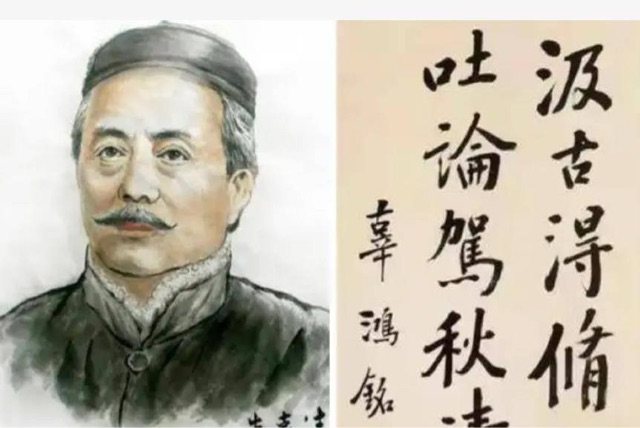 汲古淂脩
吐論駕秋
辜鴻銘